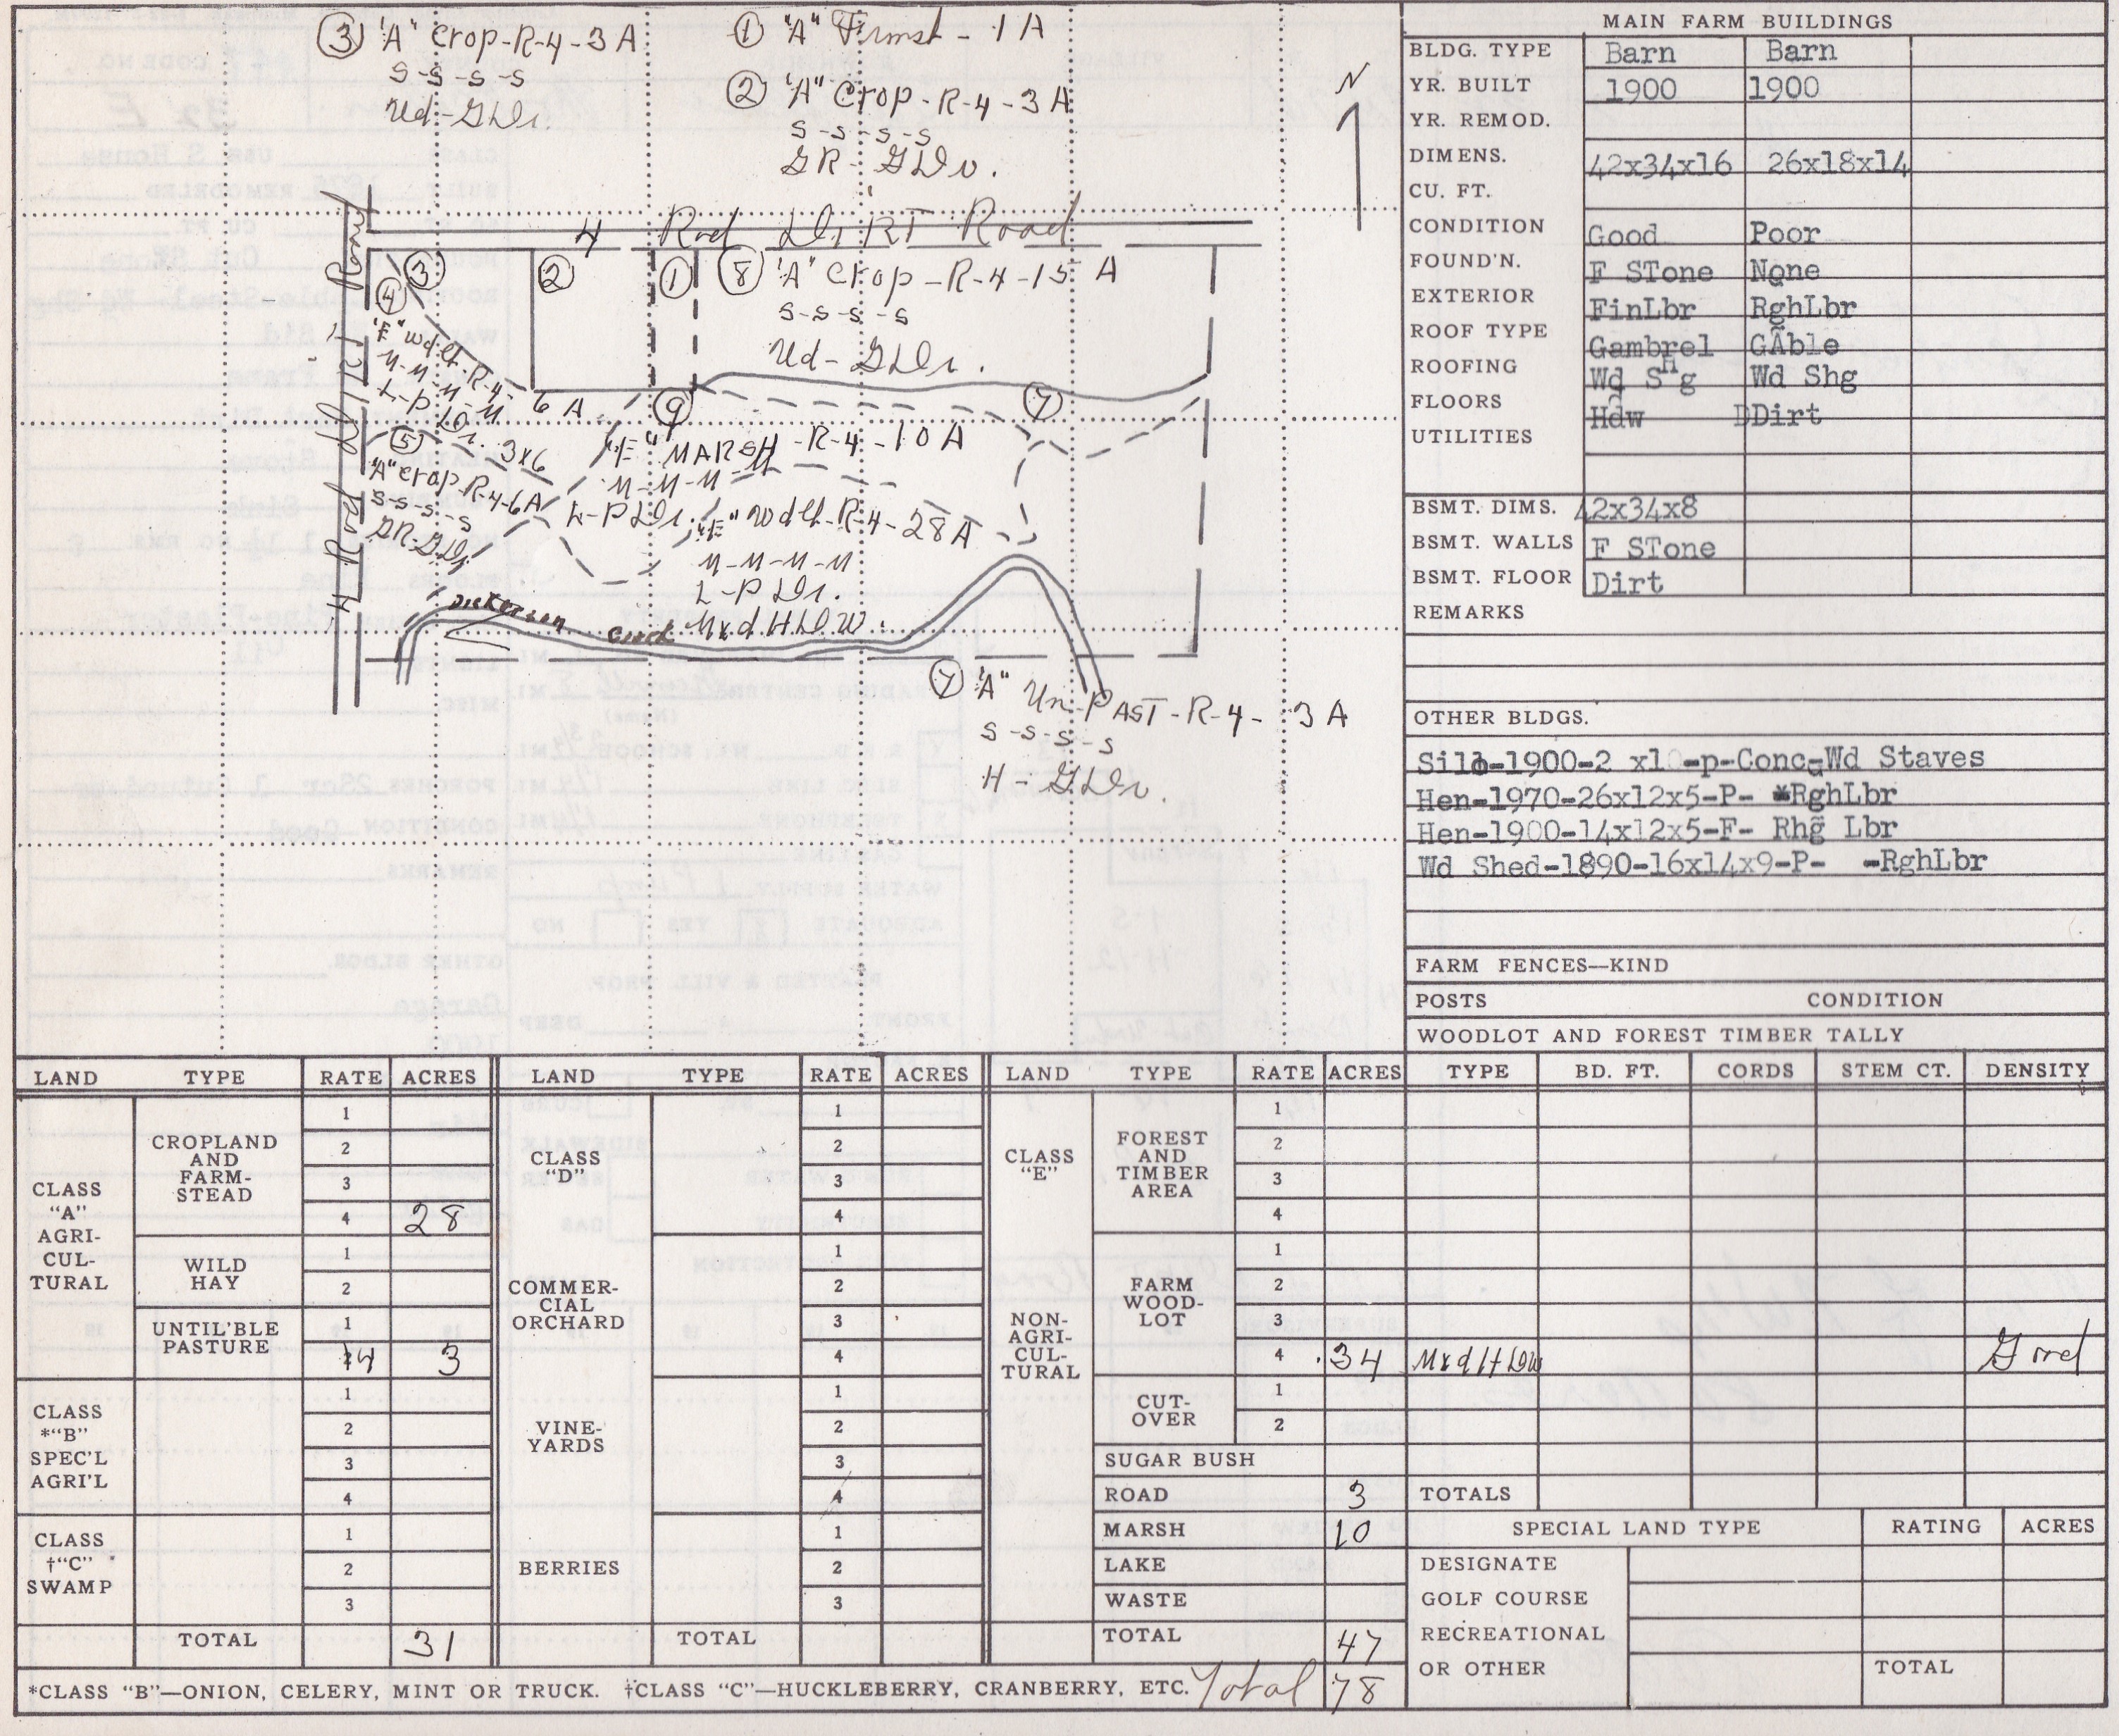 ③ "A" Crop-R-4-3 A
S-S-S-S
Ud-GDr.
① "A" Frmst - 1 A
② "A" Crop-R-4-3A
S-S-S-S
GR-GDr.
N
4 Rod DIRT Road
4 Rod DIRT Road
③
②
①
⑧ "A" Crop-R-4-15 A
S-S-S-S
Ud-GDr.
④
"E" wdlt-R-4-6 A
M-M-M-M
L-P Dr.
3x6
⑤
"A" Crop R-4-6A
S-S-S-S
GR-GDr
⑨
⑦
"E" MARSH-R-4-10A
M-M-M-M
L-PDr.
"E" wdlt-R-4-28A
M-M-M-M
L-PDr.
Mxd.H.D.W.
Dickerson Creek
⑦ "A" Un-PAST-R-4-3 A
S-S-S-S
H-GDr.
MAIN FARM BUILDINGS
BLDG. TYPE Barn Barn
YR. BUILT 1900 1900
YR. REMOD.
DIMENS. 42x34x16 26x18x14
CU. FT.
CONDITION Good Poor
FOUND'N. F STone None
EXTERIOR FinLbr RghLbr
ROOF TYPE Gambrel GAble
ROOFING Wd SHg Wd Shg
FLOORS Hdw DDirt
UTILITIES
BSMT. DIMS. 42x34x8
BSMT. WALLS F STone
BSMT. FLOOR Dirt
REMARKS
OTHER BLDGS.
Silo-1900-2 x10-p-Conc-Wd Staves
Hen-1970-26x12x5-P- *RghLbr
Hen-1900-14x12x5-F- Rhg Lbr
Wd Shed-1890-16x14x9-P- -RghLbr
FARM FENCES—KIND
POSTS CONDITION
WOODLOT AND FOREST TIMBER TALLY
LAND TYPE RATE ACRES LAND TYPE RATE ACRES LAND TYPE RATE ACRES TYPE BD. FT. CORDS STEM CT. DENSITY
CLASS
"A"
AGRI-
CUL-
TURAL
CROPLAND
AND
FARM-
STEAD
1
2
3
4 28
WILD
HAY
1
2
UNTIL'BLE
PASTURE
1
4 3
CLASS
*"B"
SPEC'L
AGRI'L
1
2
3
4
CLASS
†"C"
SWAMP
1
2
3
TOTAL 31
CLASS
"D"
1
2
3
4
COMMER-
CIAL
ORCHARD
1
2
3
4
VINE-
YARDS
1
2
3
4
BERRIES
1
2
3
TOTAL
CLASS
"E"
NON-
AGRI-
CUL-
TURAL
FOREST
AND
TIMBER
AREA
1
2
3
4
FARM
WOOD-
LOT
1
2
3
4 34 MxdHDW Good
CUT-
OVER
1
2
SUGAR BUSH
ROAD 3 TOTALS
MARSH 10
LAKE
WASTE
TOTAL 47
SPECIAL LAND TYPE RATING ACRES
DESIGNATE
GOLF COURSE
RECREATIONAL
OR OTHER TOTAL
*CLASS "B"—ONION, CELERY, MINT OR TRUCK. †CLASS "C"—HUCKLEBERRY, CRANBERRY, ETC. Total 78